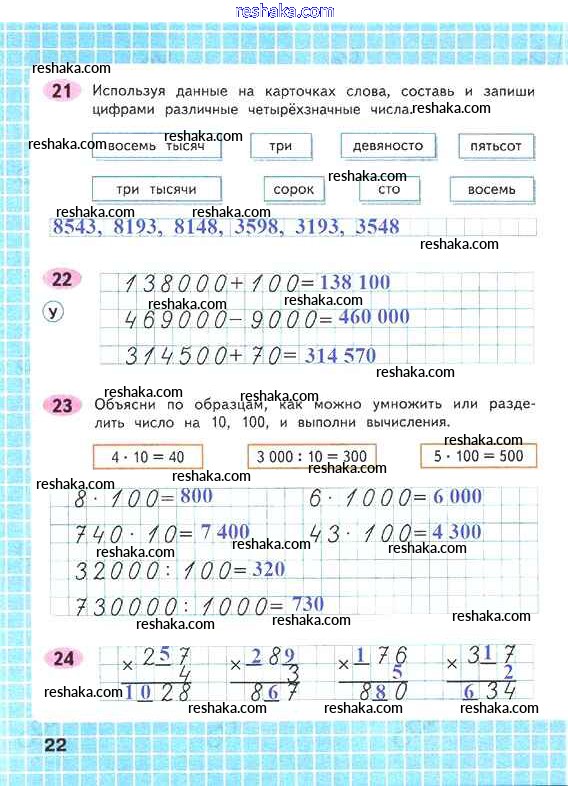 reshaka.com
reshaka.com
21 Используя данные на карточках слова, составь и запиши
цифрами различные четырёхзначные числа.
reshaka.com
reshaka.com reshaka.com
восемь тысяч три девяносто пятьсот
reshaka.com
три тысячи сорок сто восемь
reshaka.com reshaka.com
8543, 8193, 8148, 3598, 3193, 3548
reshaka.com
22 138000+100=138 100
reshaka.com reshaka.com
У 469000-9000=460 000
reshaka.com
314500+70=314 570
reshaka.com
reshaka.com
23 Объясни по образцам, как можно умножить или разде-
лить число на 10, 100, и выполни вычисления.
reshaka.com
4 · 10 = 40 3 000 : 10 = 300 5 · 100 = 500
reshaka.com reshaka.com
reshaka.com
8 · 100=800 6 · 1000=6 000
740 · 10=7 400 43 · 100=4 300
reshaka.com reshaka.com
32000 : 100=320
reshaka.com
730000 : 1000=730
reshaka.com
reshaka.com
24 × 257 × 289 × 176 × 317
4 3 5 2
reshaka.com reshaka.com
1028 867 880 634
reshaka.com reshaka.com
22